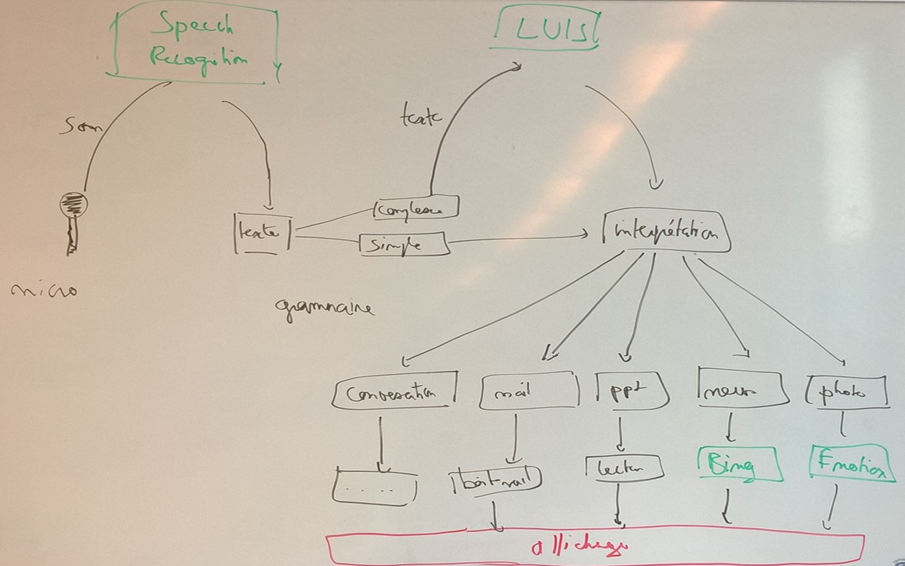 Speech
Recognition
LUIS
Son
texte
texte
Complexe
Simple
interprétation
micro
grammaire
Conversation
mail
ppt
news
photo
.....
boît mail
lecteur
Bing
Emotion
affichage